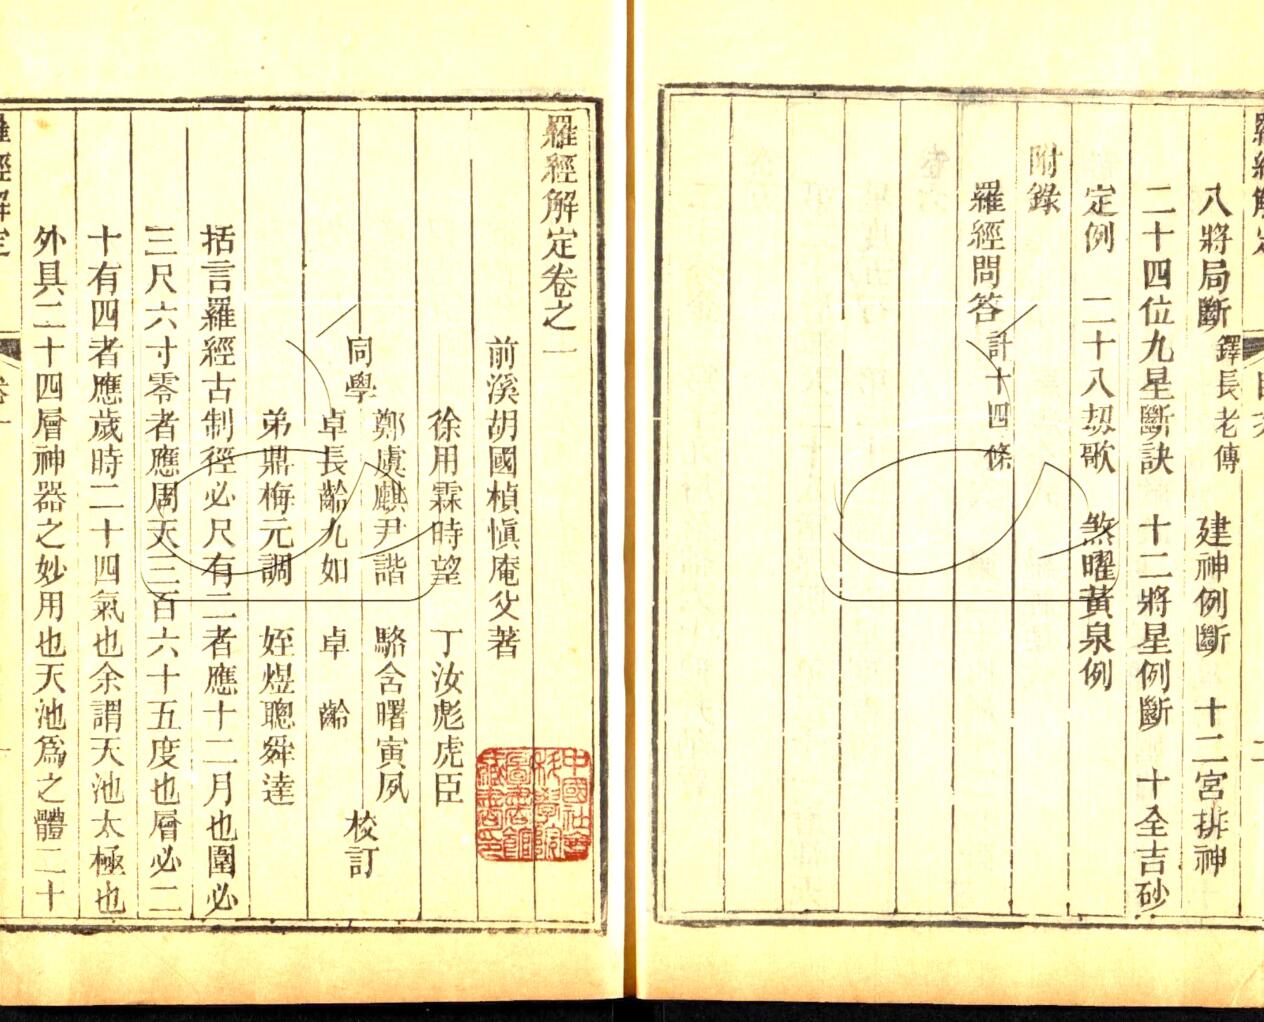 八將局斷 鐸長老傳 建神例斷 十二宮排神
二十四位九星斷訣 十二將星例斷 十全吉砂
定例 二十八刼歌 煞曜黃泉例
附錄
羅經問答 計十四條
羅經解定卷之一
前溪胡國楨慎庵父著
徐用霖時望 丁汝彪虎臣
鄭虞麒尹諧 駱含曙寅夙
同學 校訂
卓長齡九如 卓 齡
弟鼎梅元調 姪煜聰舜達
括言羅經古制徑必尺有二者應十二月也圍必
三尺六寸零者應周天三百六十五度也層必二
十有四者應歲時二十四氣也余謂天池太極也
外具二十四層神器之妙用也天池爲之體二十
羅經解定 卷一
中國社會科學院圖書館藏書印